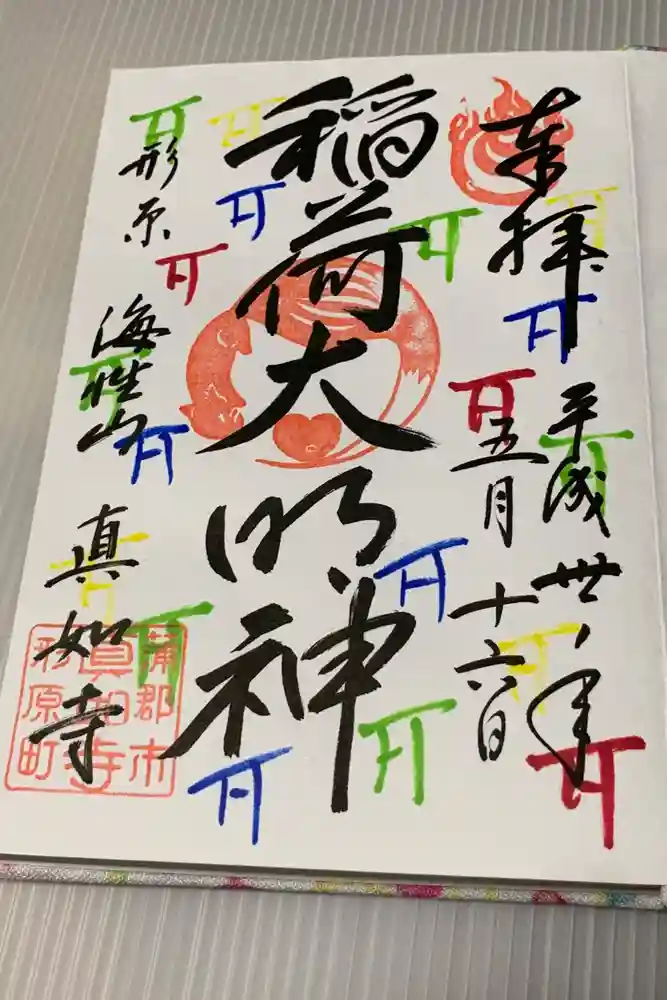 奉拝
平成卅一年
五月十六日
稲荷大明神
形原
海性山
真如寺
蒲郡市
真如寺
形原町